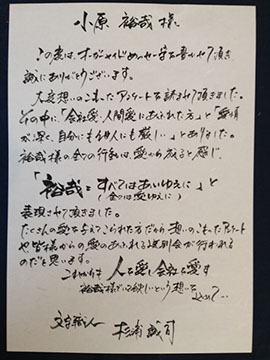 小原 裕哉 様
この度は、オーダーメイドメッセージ書を書かせて頂き
誠にありがとうございます。
大変想いのこもったアンケートを読ませて頂きました。
その中に「会社愛・人間愛にあふれた方」と「愛情
が深く、自分にも他人にも厳しい」とありました。
裕哉様の全ての行動は、愛から成ると感じ、
「裕哉 すべてはあいゆえに」と
(全ては愛ゆえに)
表現させて頂きました。
たくさんの愛を与えてこられた方だから想いのこもったアンケート
や皆様からの愛のあふれる送別会が行われる
のだと思います。
これからも 人を愛し会社を愛す
裕哉様でいて欲しいという想いを
込めて…
文字職人 杉浦誠司